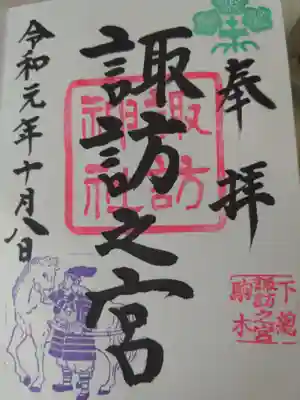 奉拝
諏訪之宮
諏訪
神社
令和元年十月八日
下總
諏訪之宮
駒木